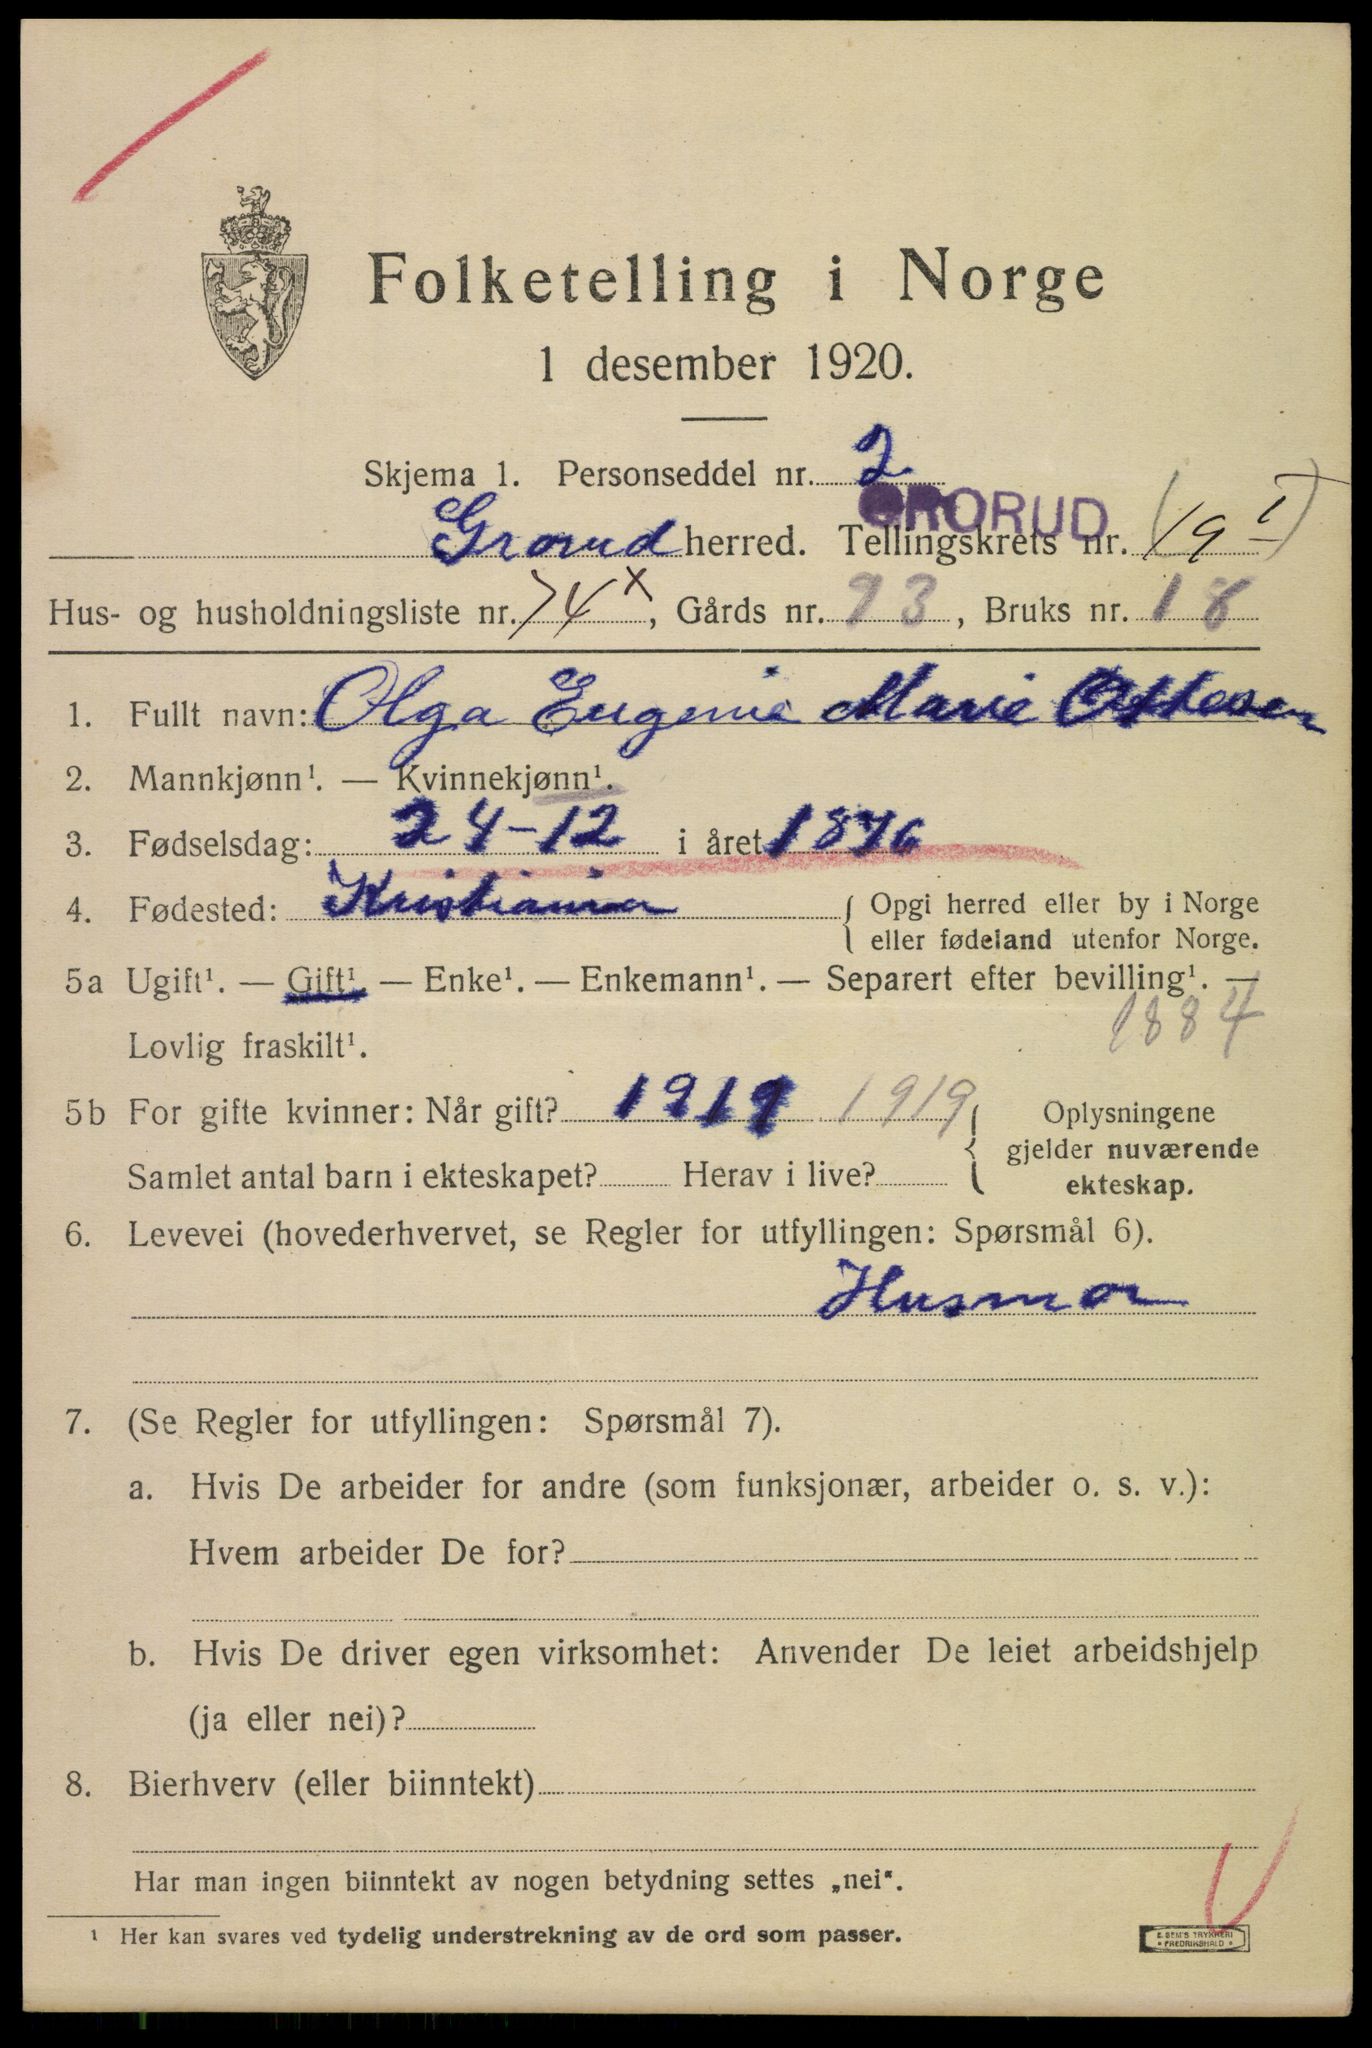 Folketelling i Norge
1 desember 1920.
Skjema 1. Personseddel nr. 2
GRORUD
Grorud herred. Tellingskrets nr. (19 I)
Hus- og husholdningsliste nr. 74 x, Gårds nr. 93, Bruks nr. 18
1. Fullt navn: Olga Eugenie Marie Ottesen
2. Mannkjønn¹. — Kvinnekjønn¹.
3. Fødselsdag: 24-12 i året 1876
4. Fødested: Kristiania { Opgi herred eller by i Norge
eller fødeland utenfor Norge.
5a Ugift¹. — Gift¹. — Enke¹. — Enkemann¹. — Separert efter bevilling¹. —
Lovlig fraskilt¹. 1884
5b For gifte kvinner: Når gift? 1919 1919 { Oplysningene
gjelder nuværende
Samlet antal barn i ekteskapet? Herav i live? ekteskap.
6. Levevei (hovederhvervet, se Regler for utfyllingen: Spørsmål 6).
Husmor
7. (Se Regler for utfyllingen: Spørsmål 7).
a. Hvis De arbeider for andre (som funksjonær, arbeider o. s. v.):
Hvem arbeider De for?
b. Hvis De driver egen virksomhet: Anvender De leiet arbeidshjelp
(ja eller nei)?
8. Bierhverv (eller biinntekt)
Har man ingen biinntekt av nogen betydning settes „nei“.
¹ Her kan svares ved tydelig understrekning av de ord som passer.
E. SEM'S TRYKKERI
• FREDRIKSHALD •